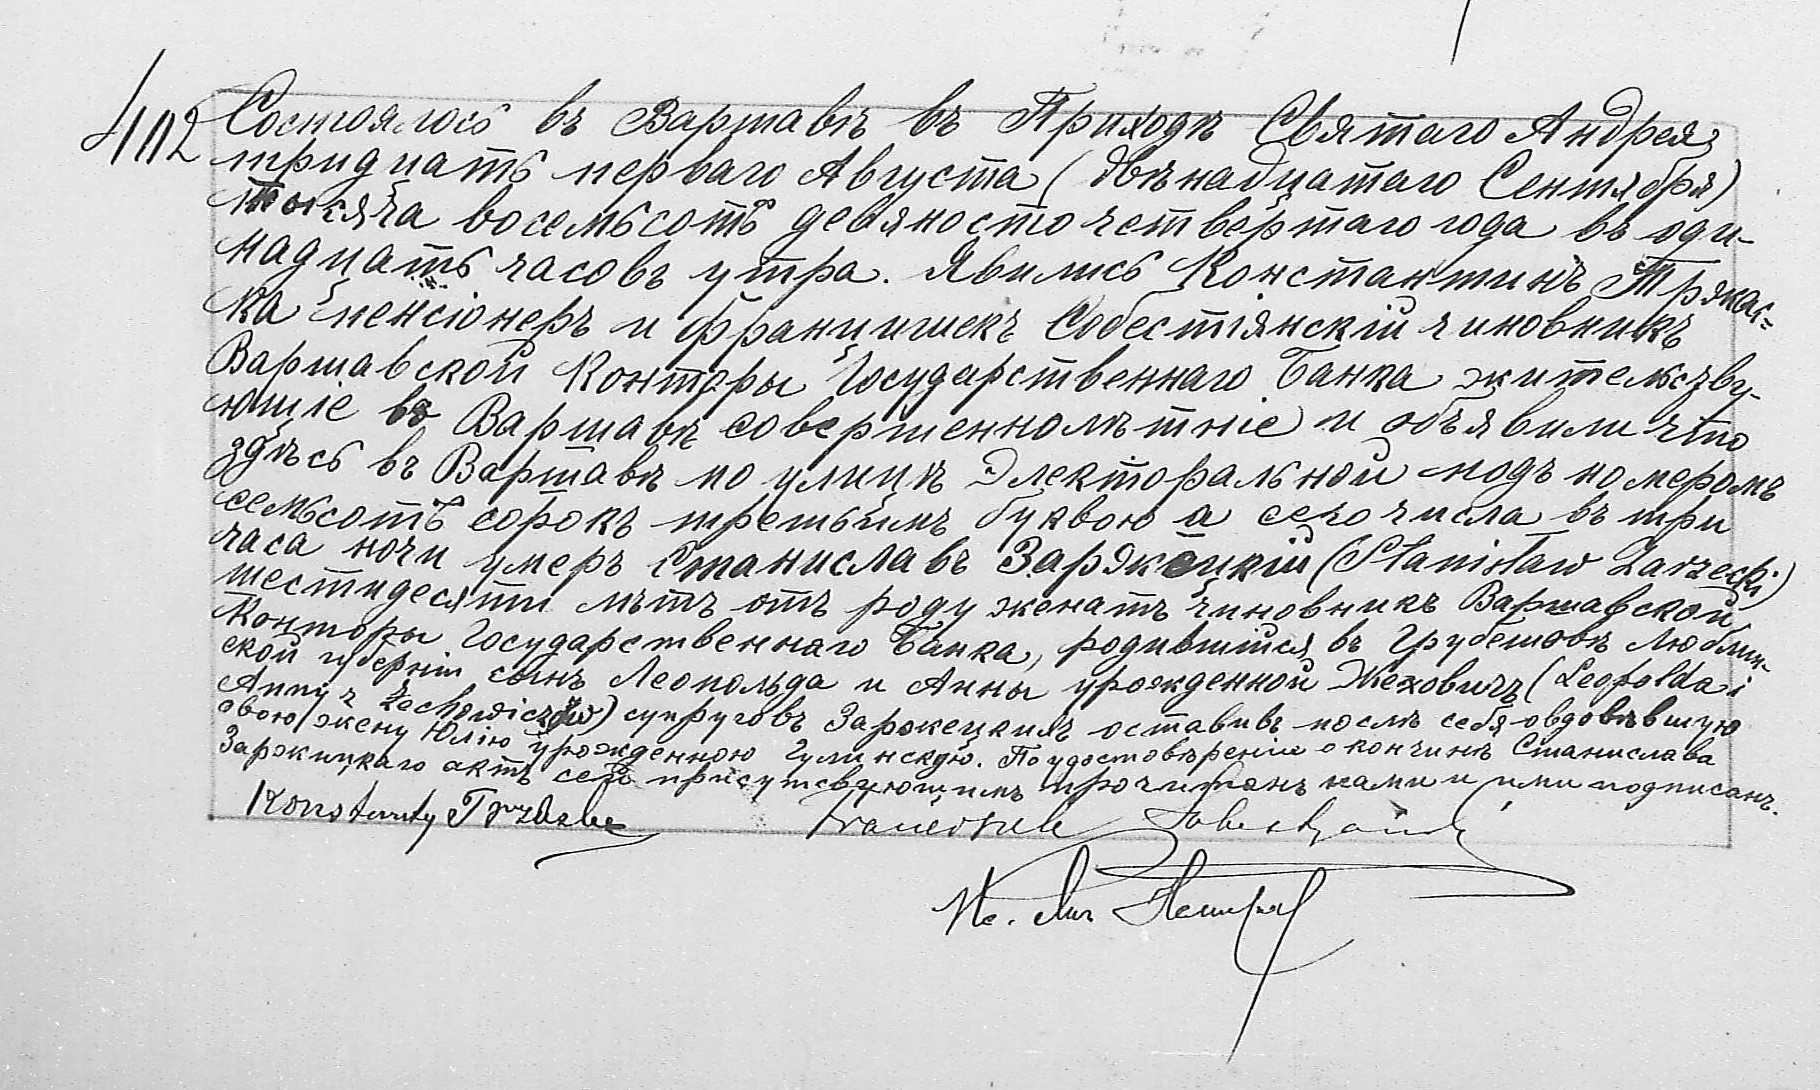 402
Состоялось въ Варшавѣ въ Приходѣ Святаго Андрея
тридцать перваго Августа (двѣнадцатаго Сентября)
тысяча восемьсотъ девяносто четвертаго года въ оди-
надцать часовъ утра. Явились Константинъ Тржас-
ка пенсіонеръ и Францишекъ Собестіянскій чиновникъ
Варшавской Конторы Государственнаго Банка жительству-
ющіе въ Варшавѣ совершеннолѣтніе и объявили что
здѣсь въ Варшавѣ по улицѣ Электоральной подъ номеромъ
семьсотъ сорокъ третьимъ буквою а сего числа въ три
часа ночи умеръ Станиславъ Заржецкій (Stanisław Zarzecki)
шестидесяти лѣтъ отъ роду женатъ чиновникъ Варшавской
Конторы Государственнаго Банка, родившійся въ Грубешовѣ Люблин-
ской губерніи сынъ Леопольда и Анны урожденной Жеховичъ (Leopolda i
Anny z Żechowiczów) супруговъ Заржецкихъ оставивъ послѣ себя овдовѣвшую
свою жену Юлію урожденною Гулинскую. По удостовѣреніи о кончинѣ Станислава
Заржицкаго актъ сей присутсвующимъ прочитанъ нами и ими подписанъ.
Konstanty Franciszek